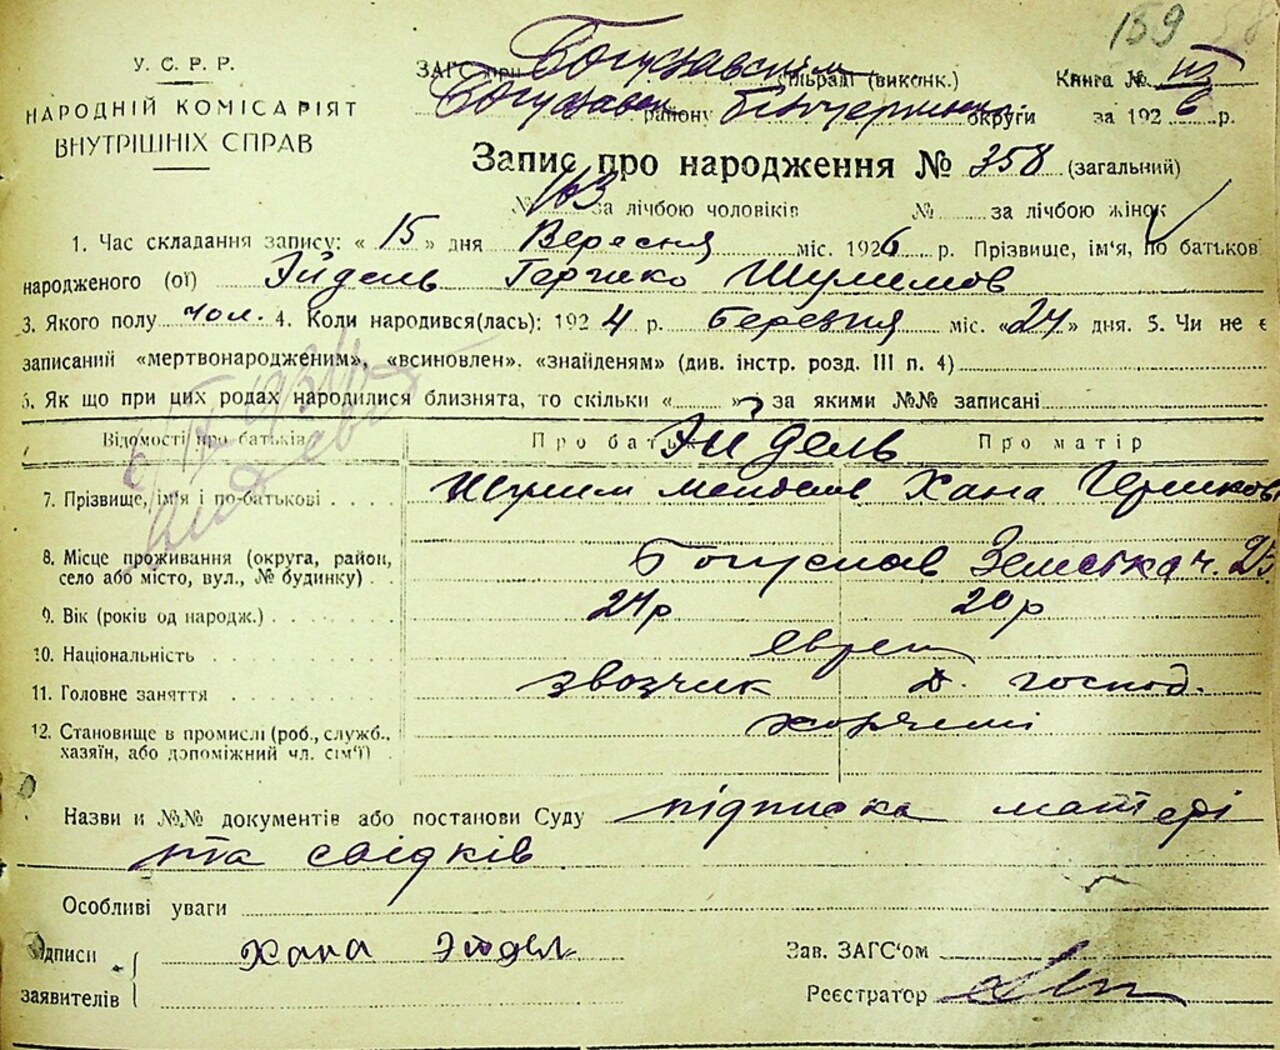 159
У. С. Р. Р.
НАРОДНІЙ КОМІСАРІЯТ
ВНУТРІШНІХ СПРАВ
ЗАГС при Богуславськім сільраді (виконк.) Книга № III
Богуславск району Білоцерківськ округи за 1926 р.
Запис про народження № 358 (загальний)
№ 163 за лічбою чоловіків № за лічбою жінок
1. Час складання запису: « 15 » дня Вересня міс. 1926 р. Прізвище, ім'я, по батькові
народженого (ої) Эйдель Гершко Шулимов
3. Якого полу чол. 4. Коли народився(лась): 1924 р. Березня міс. «24» дня. 5. Чи не є
записаний «мертвонародженим», «всиновлен». «знайденям» (див. інстр. розд. III п. 4)
6. Як що при цих родах народилися близнята, то скільки « » і за якими №№ записані
Відомості про батьків Про батька Про матір
Эйдель
7. Прізвище, ім'я і по-батькові Шулим Менделев Хана Гершкова
8. Місце проживання (округа, район,
село або місто, вул., № будинку) Богуслав
9. Вік (років од народж.) 24р 20р
10. Національність евреи
11. Головне заняття звозчик д. господ.
12. Становище в промислі (роб., служб.,
хазяїн, або допоміжний чл. сім'ї)
Назви и №№ документів або постанови Суду підписка матері
та свідків
Особливі уваги
Підписи
заявителів
Хана Эйдел
Зав. ЗАГС'ом
Реєстратор